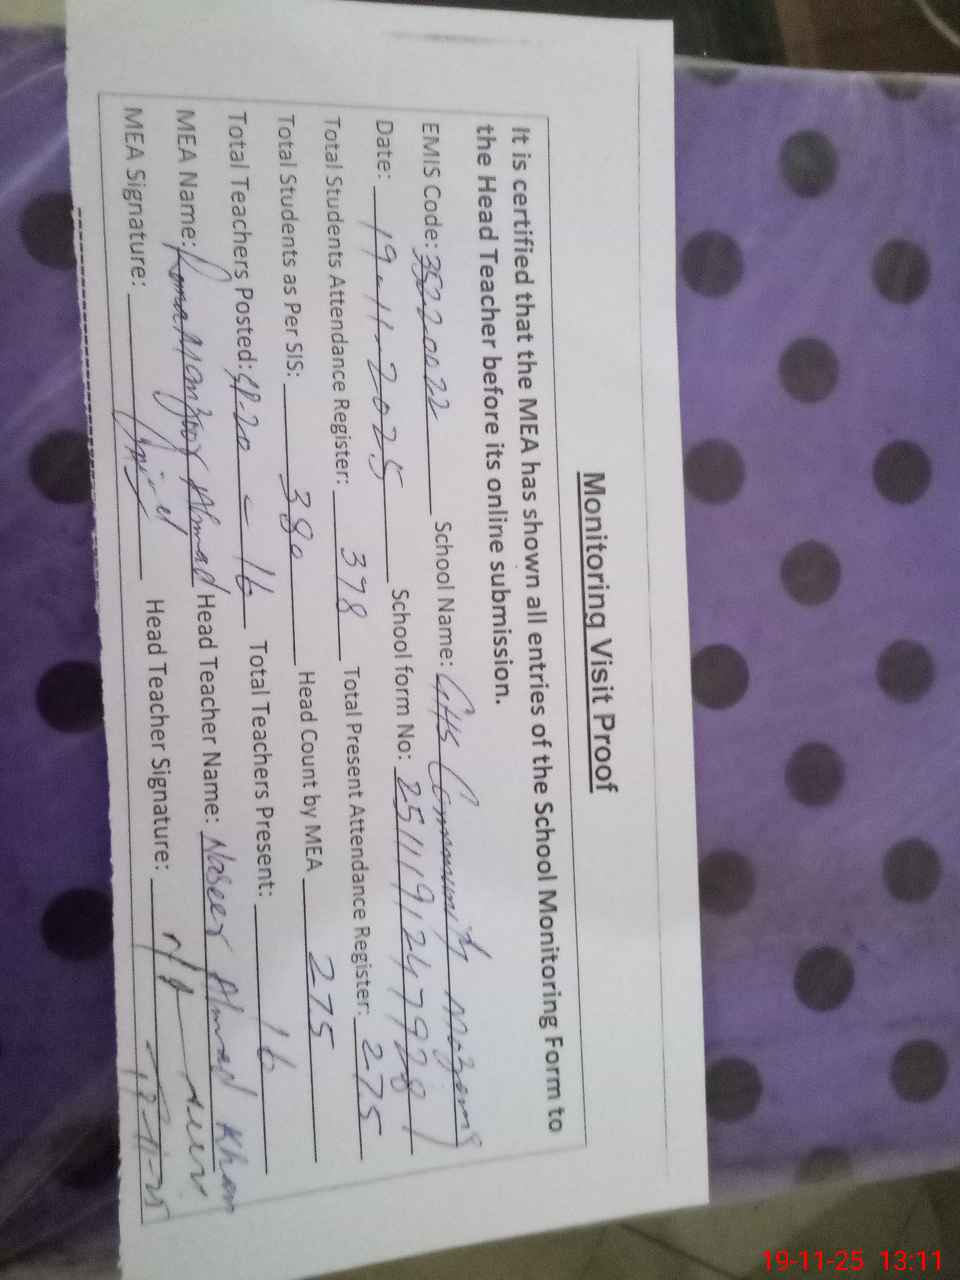 Monitoring Visit Proof
It is certified that the MEA has shown all entries of the School Monitoring Form to
the Head Teacher before its online submission.
EMIS Code: 35220022 School Name: GHS Community
Date: 19-11-2025 School form No: 2511191247928
Total Students Attendance Register: 378 Total Present Attendance Register: 275
Total Students as Per SIS: 380 Head Count by MEA 275
Total Teachers Posted: - 16 Total Teachers Present: 16
MEA Name: Manzoor Ahmad Head Teacher Name: Naseer Ahmed Khan
MEA Signature: Head Teacher Signature:
19-11-25 13:11